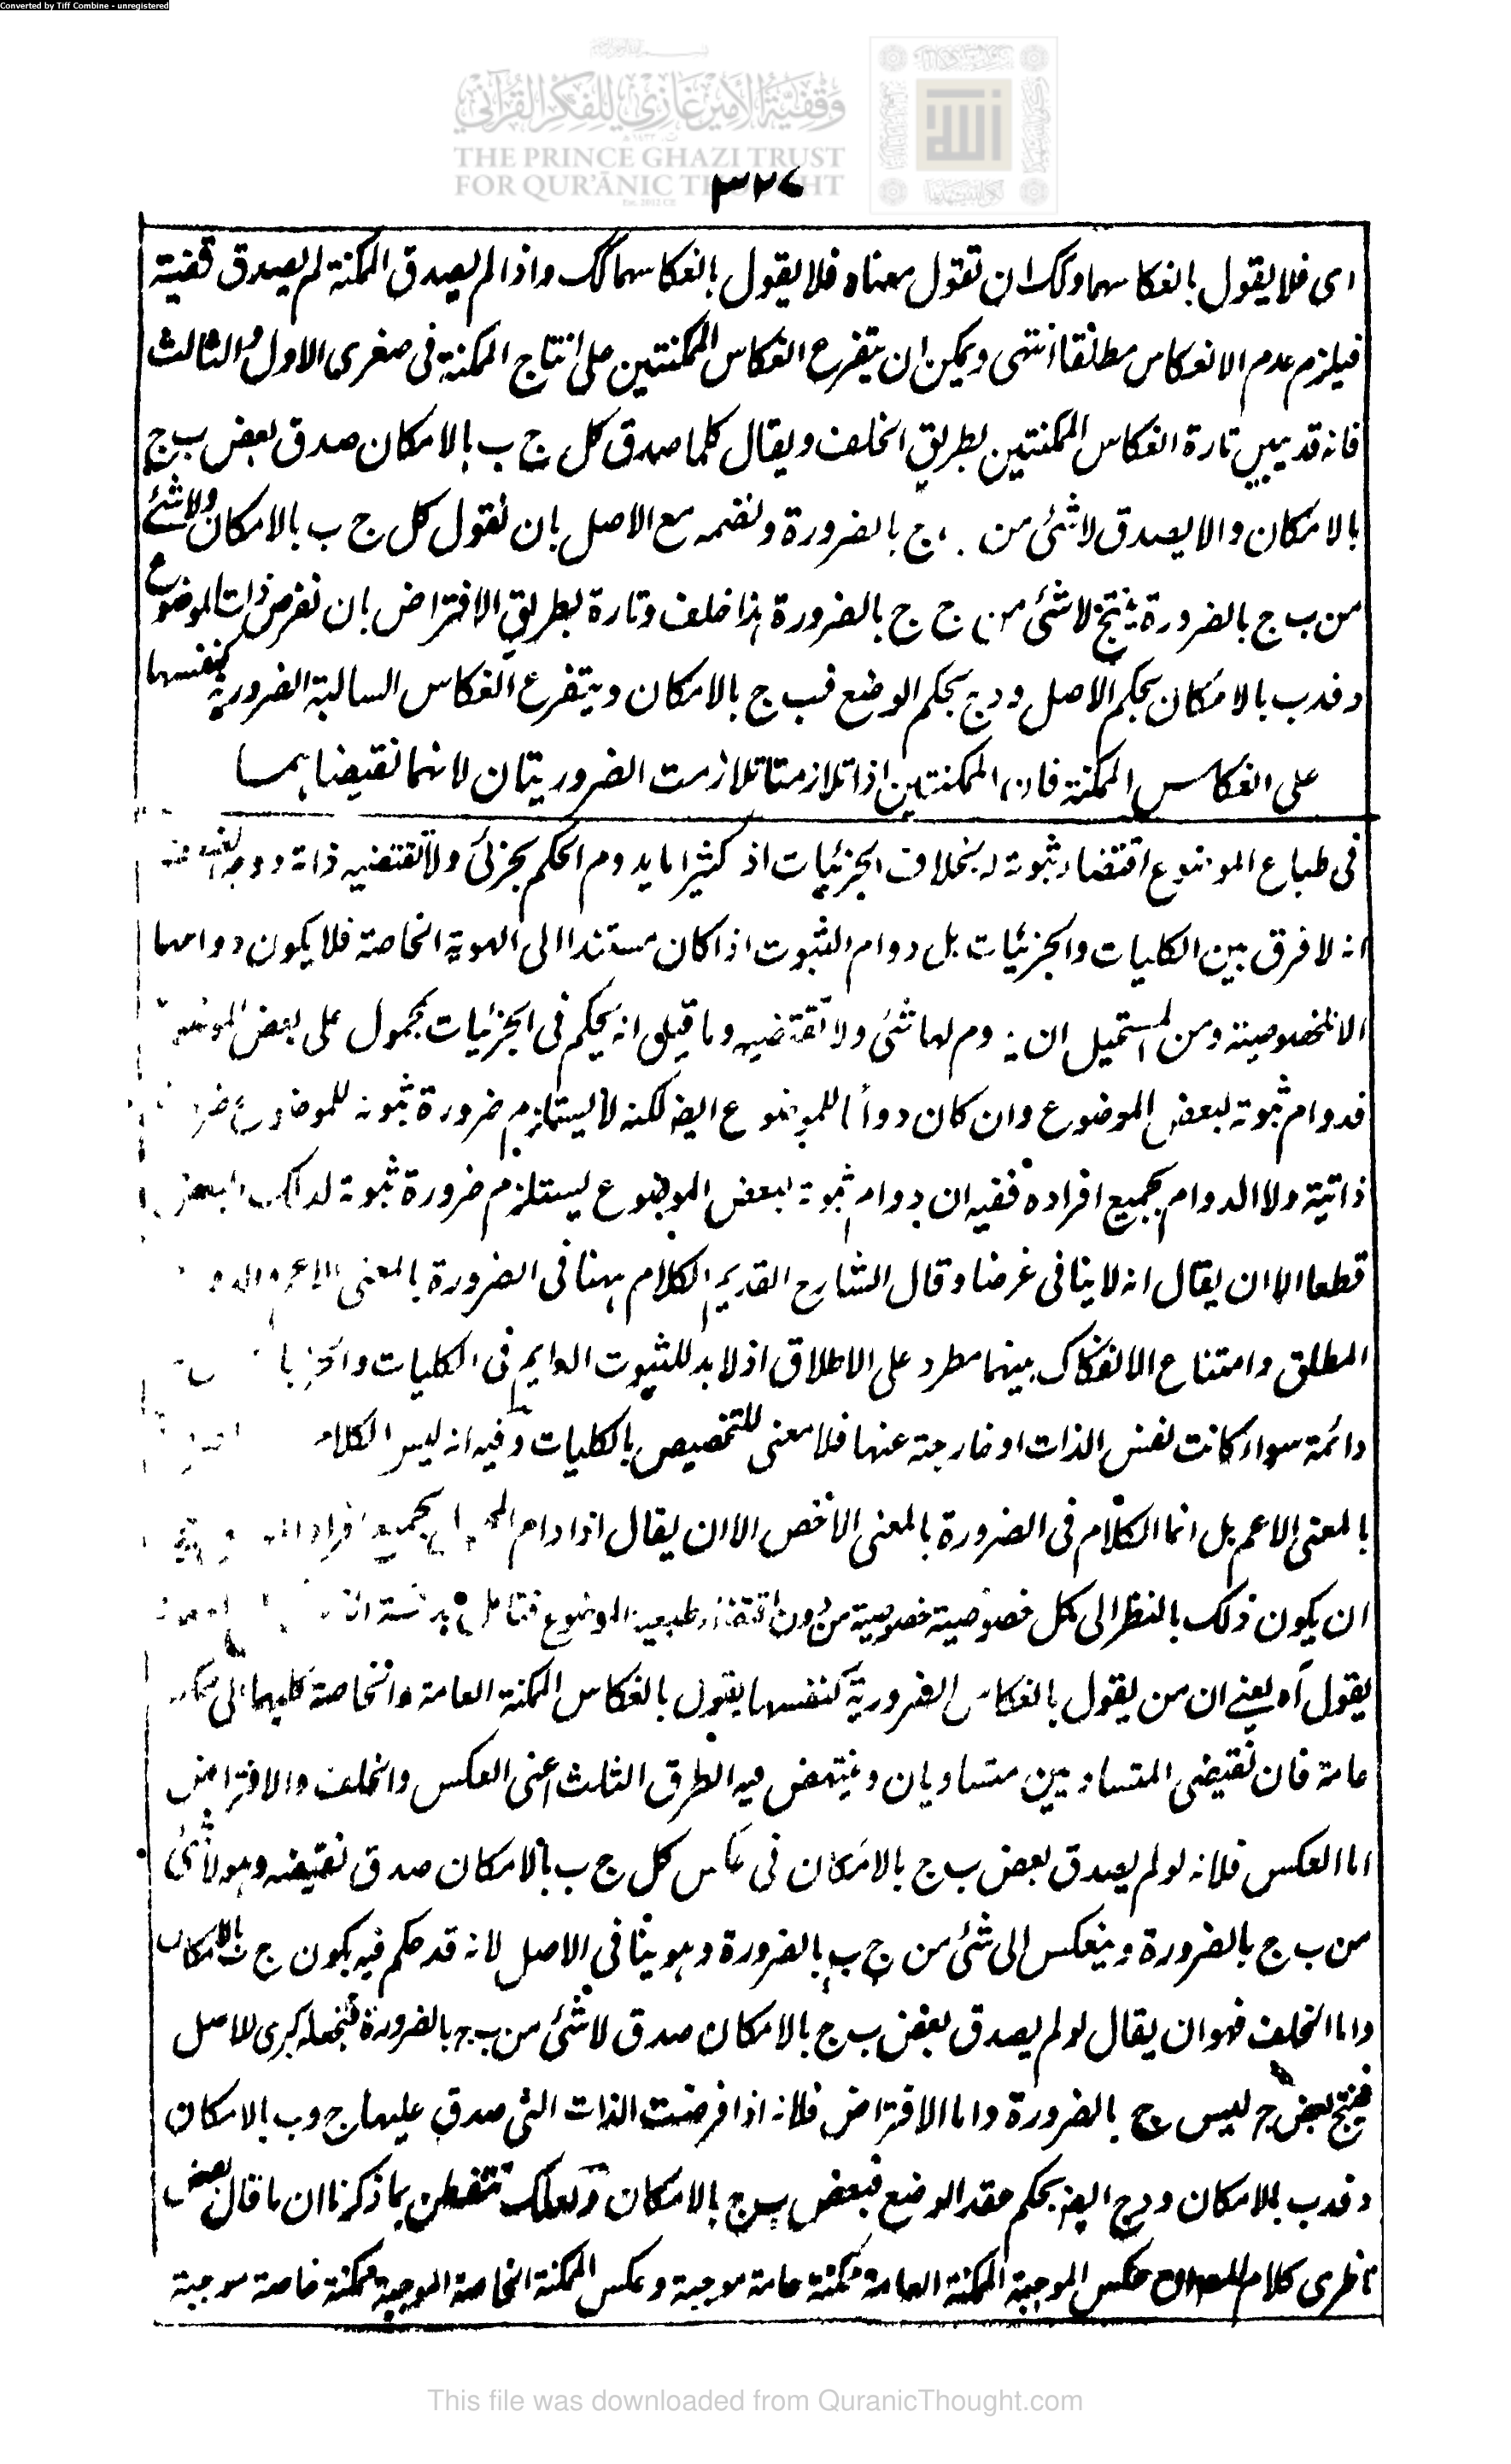 Converted by Tiff Combine - unregistered
وقفية الأمير غازي للفكر القرآني
THE PRINCE GHAZI TRUST
FOR QUR'ĀNIC THOUGHT
٣٢٧
اى فلا يقول بانعكاسهما ولك ان تقول معناه فلا يقول بانعكاسهما لك واذا لم يصدق الممكنة لم يصدق قضية
فيلزم عدم الانعكاس مطلقا انتهى ويمكن ان يتفرع انعكاس الممكنتين على انتاج الممكنة فى صغرى الاول والثالث
فانه قد يبين تارة انعكاس الممكنتين بطريق الخلف ويقال كلما صدق كل ج ب بالامكان صدق بعض ب ج
بالامكان والا يصدق لا شئ من ج بالضرورة ونضمه مع الاصل بان نقول كل ج ب بالامكان ولا شئ
من ب ج بالضرورة ينتج لا شئ من ج ج بالضرورة هذا خلف وتارة بطريق الافتراض بان نفرض ذات الموضوع
د فدب بالامكان بحكم الاصل ودج بحكم الوضع فب ج بالامكان ويتفرع انعكاس السالبة الضرورية كنفسها
على انعكاس الممكنة فان الممكنتين اذا تلازمتا تلازمت الضروريتان لانهما نقيضاهما
فى طباع الموضوع اقتضاء ثبوته له بخلاف الجزئيات اذ كثيرا ما يدوم الحكم بجزئ ولا تقتضيه ذاته
انه لا فرق بين الكليات والجزئيات بل دوام الثبوت اذا كان مستندا الى الهوية الخاصة فلا يكون دوامها
الا لخصوصيته ومن المستحيل ان يدوم لها شئ ولا تقتضيه وما قيل انه يحكم فى الجزئيات بمحمول على بعض الموضوع
فدوام ثبوته لبعض الموضوع وان كان دواما للموضوع ايضا لكنه لا يستلزم ضرورة ثبوته للموضوع
ذاتية ولا الدوام بجميع افراده ففيه ان دوام ثبوته لبعض الموضوع يستلزم ضرورة ثبوته لذلك البعض
قطعا الا ان يقال انه لا ينافى غرضنا وقال الشارح القديم الكلام ههنا فى الضرورة بالمعنى الاعم
المطلق وامتناع الانفكاك بينهما مطرد على الاطلاق اذ لا بد للثبوت الدايم فى الكليات
دائمة سواء كانت نفس الذات او خارجة عنها فلا معنى للتخصيص بالكليات وفيه انه ليس الكلام
بالمعنى الاعم بل انما الكلام فى الضرورة بالمعنى الاخص الا ان يقال اذا دام بجميع افراد
ان يكون ذلك بالنظر الى كل خصوصية خصوصية من دون اقتضاء طبيعة الموضوع فتامل
يقول آه يعنى ان من يقول بانعكاس الضرورية كنفسها يقول بانعكاس الممكنة العامة والخاصة كليهما الى ممكنة
عامة فان نقيضى المتساويين متساويان وينتهض فيه الطرق الثلث اعنى العكس والخلف والافتراض
اما العكس فلانه لو لم يصدق بعض ب ج بالامكان فى عكس كل ج ب بالامكان صدق نقيضه وهو لا شئ
من ب ج بالضرورة وينعكس الى شئ من ج ب بالضرورة وهو ينافى الاصل لانه قد حكم فيه بكون ج ب بالامكان
واما الخلف فهو ان يقال لو لم يصدق بعض ب ج بالامكان صدق لا شئ من ب ج بالضرورة فنجعله كبرى للاصل
فينتج بعض ج ليس ج بالضرورة واما الافتراض فلانه اذا فرضت الذات التى صدق عليها ج وب بالامكان
د فدب بالامكان ودج ايضا بحكم عقد الوضع فبعض ب ج بالامكان ولعلك تتفطن بما ذكرنا ان ما قال بعض
ناظرى كلام عكس الموجبة الممكنة العامة ممكنة عامة موجبة وعكس الممكنة الخاصة الموجبة ممكنة خاصة موجبة
This file was downloaded from QuranicThought.com